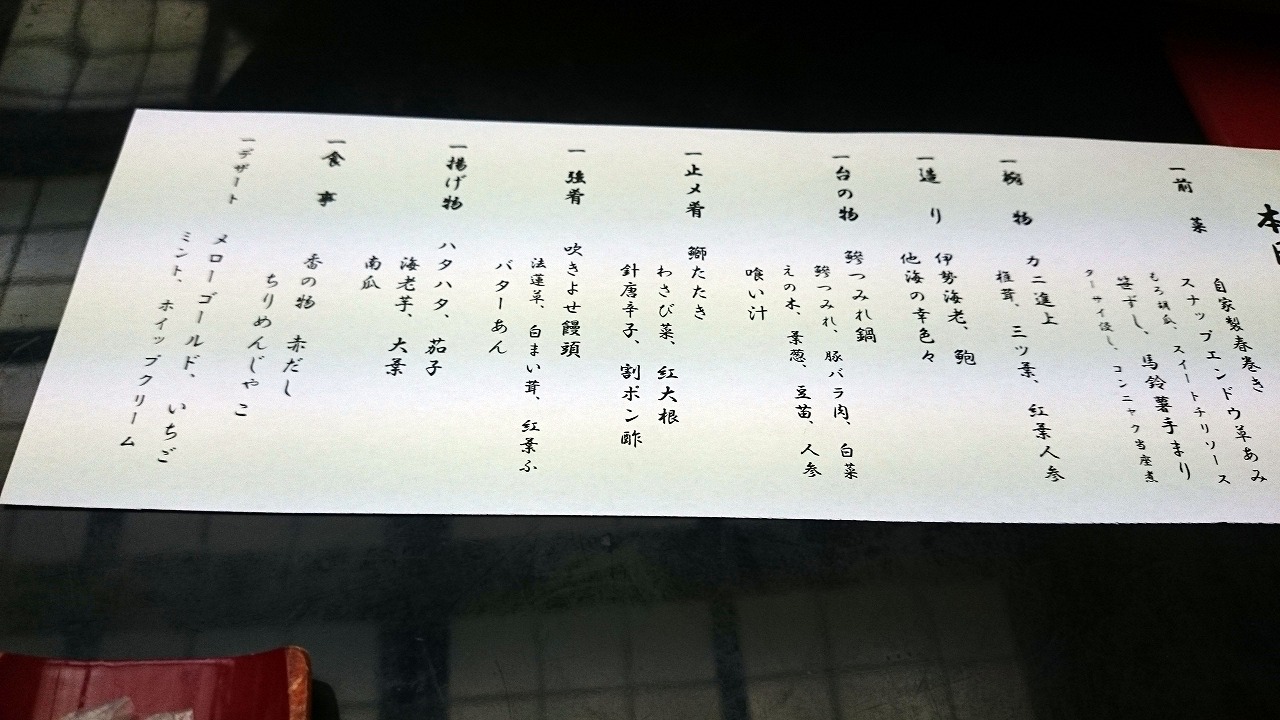 本日
一前菜
自家製春巻き
スナップエンドウ草あみ
もろ胡瓜、スイートチリソース
笹ずし、馬鈴薯手まり
ターサイ浸し、コンニャク当座煮
一椀物
カニ進上
椎茸、三ツ葉、紅葉人参
一造り
伊勢海老、鮑
他海の幸色々
一台の物
鰺つみれ鍋
鰺つみれ、豚バラ肉、白菜
えの木、葉葱、豆苗、人参
喰い汁
一止メ肴
鰤たたき
わさび菜、紅大根
針唐辛子、割ポン酢
一強肴
吹きよせ饅頭
法蓮草、白まい茸、紅葉ふ
バターあん
一揚げ物
ハタハタ、茄子
海老芋、大葉
南瓜
一食事
香の物 赤だし
ちりめんじゃこ
一デザート
メローゴールド、いちご
ミント、ホイップクリーム